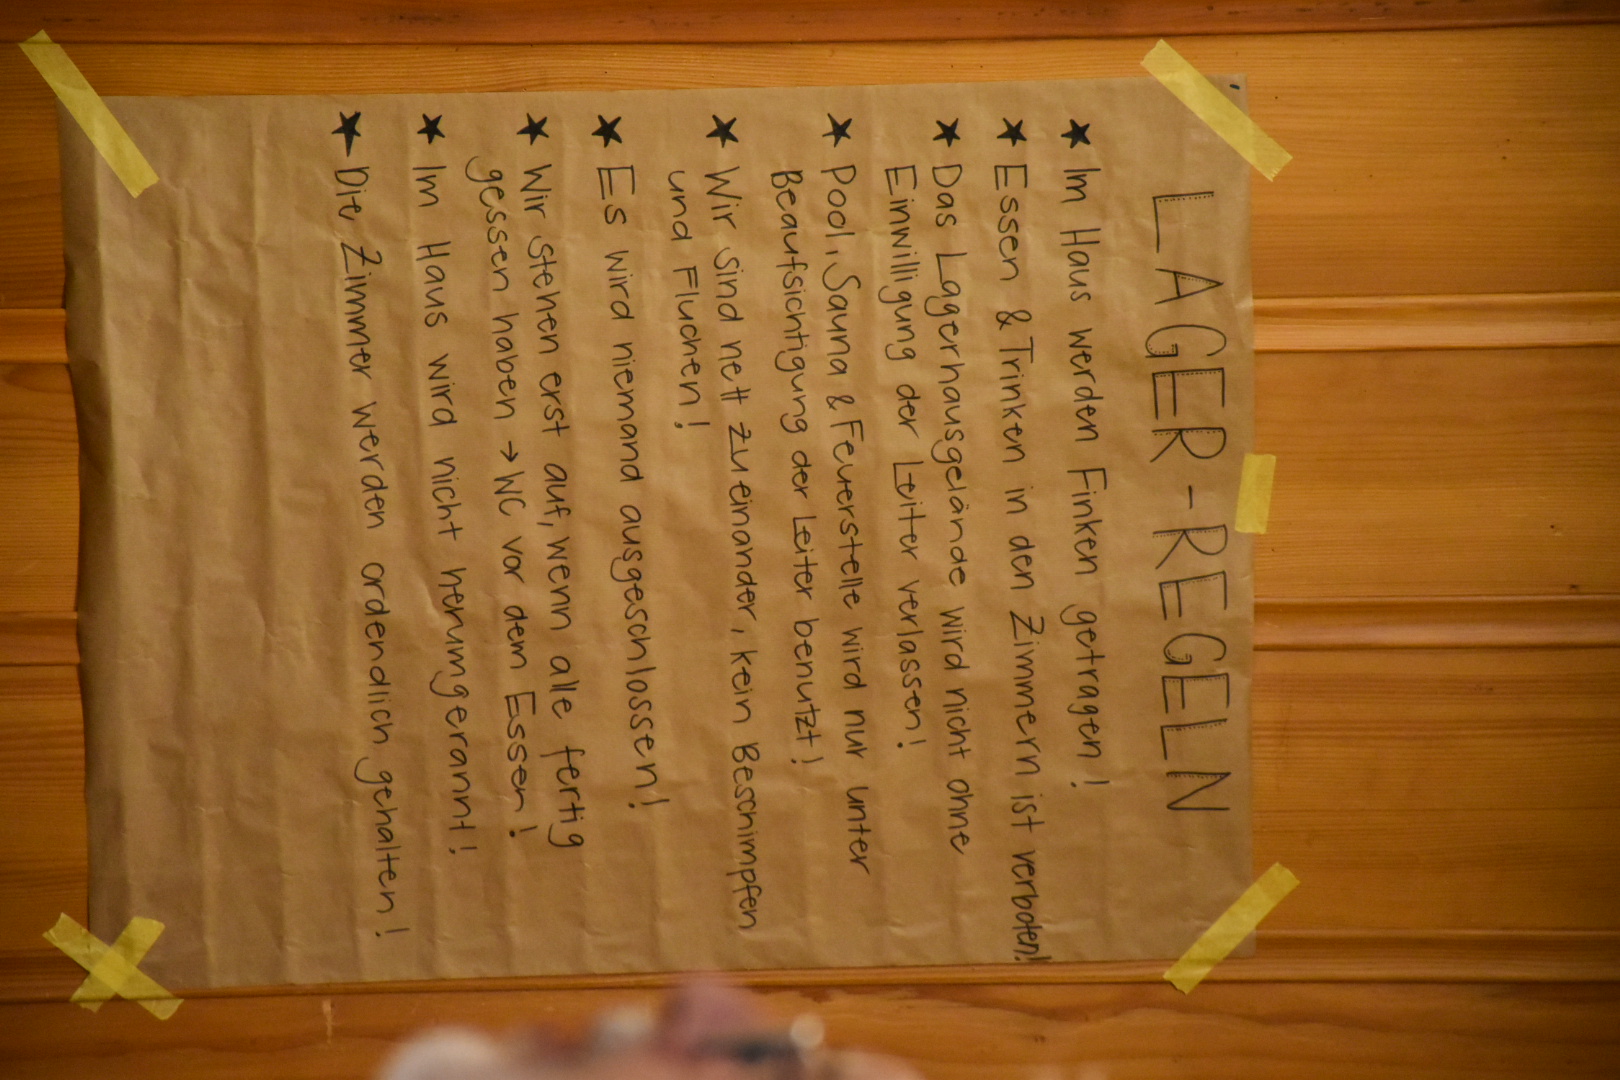 LAGER-REGELN
★ Im Haus werden Finken getragen!
★ Essen & Trinken in den Zimmern ist verboten!
★ Das Lagerhausgelände wird nicht ohne
Einwilligung der Leiter verlassen!
★ Pool, Sauna & Feuerstelle wird nur unter
Beaufsichtigung der Leiter benutzt!
★ Wir sind nett zueinander, kein Beschimpfen
und Fluchen!
★ Es wird niemand ausgeschlossen!
★ Wir stehen erst auf, wenn alle fertig
gessen haben → WC vor dem Essen!
★ Im Haus wird nicht herumgerannt!
★ Die Zimmer werden ordendlich gehalten!